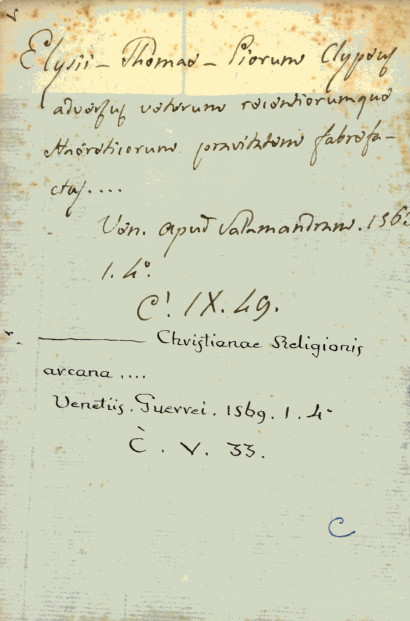 Elysii - Thomae - Piorum Clypeus
adversus veterum recentiorumque
Haereticorum pravitatem fabrefa-
ctus....
Ven. apud Salamandram. 1563
1. 4°.
C! IX. 49.
———— Christianae Religionis
arcana ....
Venetiis. Guerrei. 1569. 1. 4°
C̀ . V. 33.
C